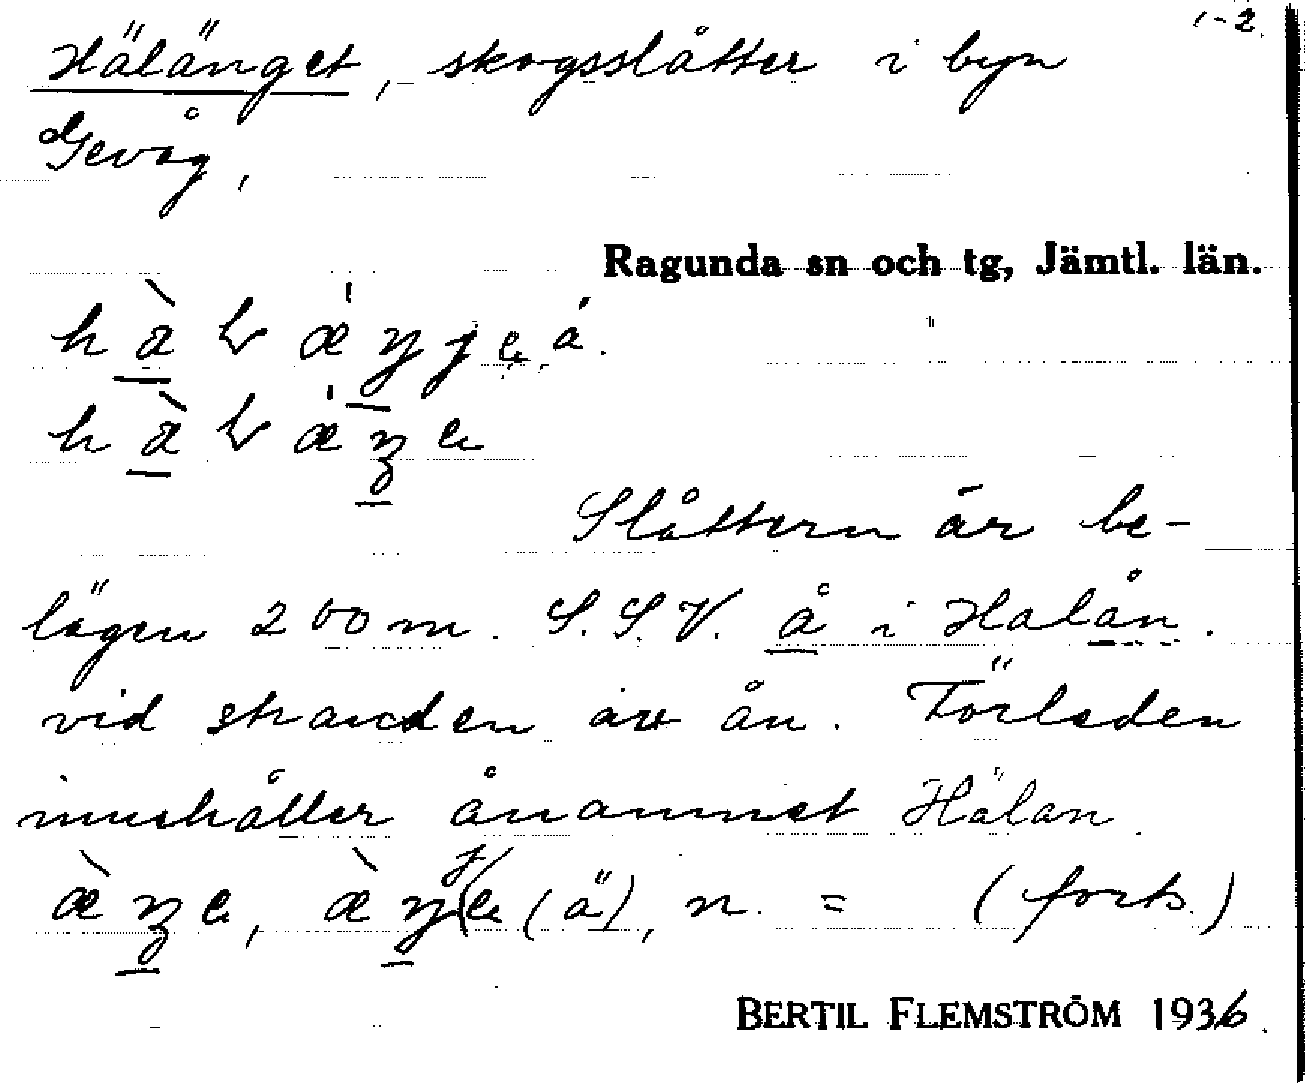 1-2.
Hälänget, skogsslåtter i byn
Gevåg,
Ragunda sn och tg, Jämtl. län.
Slåttern är be-
lägen 200 m. S.S.V. å i Halån.
vid stranden av ån. Förleden
innehåller ånamnet Hälan
n. = (forts.)
BERTIL FLEMSTRÖM 1936.